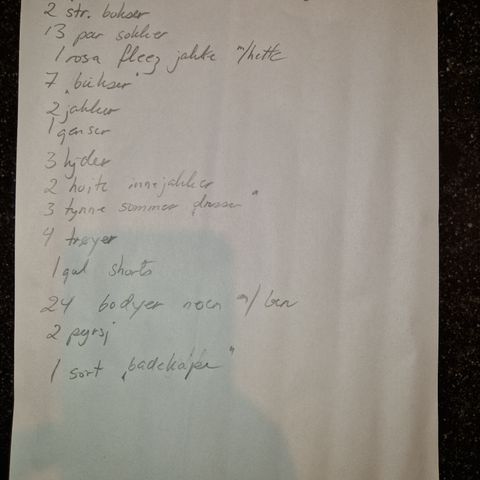 2 str. bukser
13 par sokker
1 rosa fleez jakke m/hette
7 "bukser"
2 jakker
1 genser
3 kjoler
2 hvite innejakker
3 tynne sommer dresser"
4 trøyer
1 gul shorts
24 bodyer noen m/ben
2 pysj
1 sort "badekåpe"